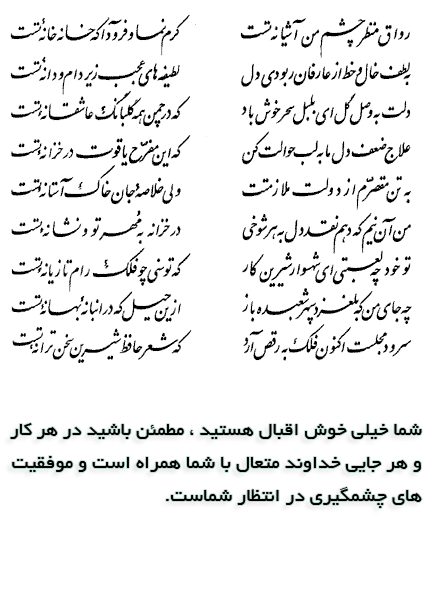 رواق منظر چشم من آشیانه تست کرم نما و فرود آ که خانه خانه تست
بلطف خال و خط از عارفان ربودی دل لطیفه‌های عجب زیر دام و دانه تست
دلت به وصل گل ای بلبل سحر خوش باد که در چمن همه گلبانگ عاشقانه تست
علاج ضعف دل ما به لب حوالت کن که این مفرح یاقوت در خزانه تست
به تن مقصرم از دولت ملازمتت ولی خلاصه جان خاک آستانه تست
من آن نیم که دهم نقد دل به هر شوخی در خزانه به مهر تو و نشانه تست
تو خود چه لعبتی ای شهسوار شیرین کار که توسنی چو فلک رام تازیانه تست
چه جای من که بلغزد سپهر شعبده باز ازین حیل که در انبانه بهانه تست
سرود مجلست اکنون فلک به رقص آرد که شعر حافظ شیرین سخن ترانه تست
شما خیلی خوش اقبال هستید ، مطمئن باشید در هر کار
و هر جایی خداوند متعال با شما همراه است و موفقیت
های چشمگیری در انتظار شماست.